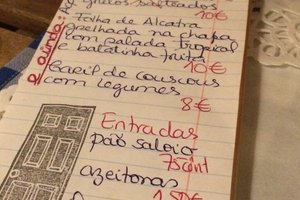 grelos salteados
10€
e ainda:
Folha de Alcatra
grelhada na chapa
com salada tropical
e batatinha fritas
10€
Caril de couscous
com legumes
8€
Entradas
pão saloio
75cent
azeitonas
1.50€